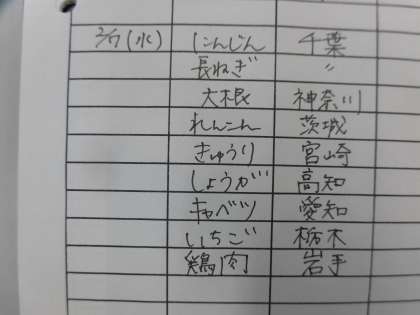 2/7(水) にんじん 千葉
長ねぎ 〃
大根 神奈川
れんこん 茨城
きゅうり 宮崎
しょうが 高知
キャベツ 愛知
いちご 栃木
鶏肉 岩手